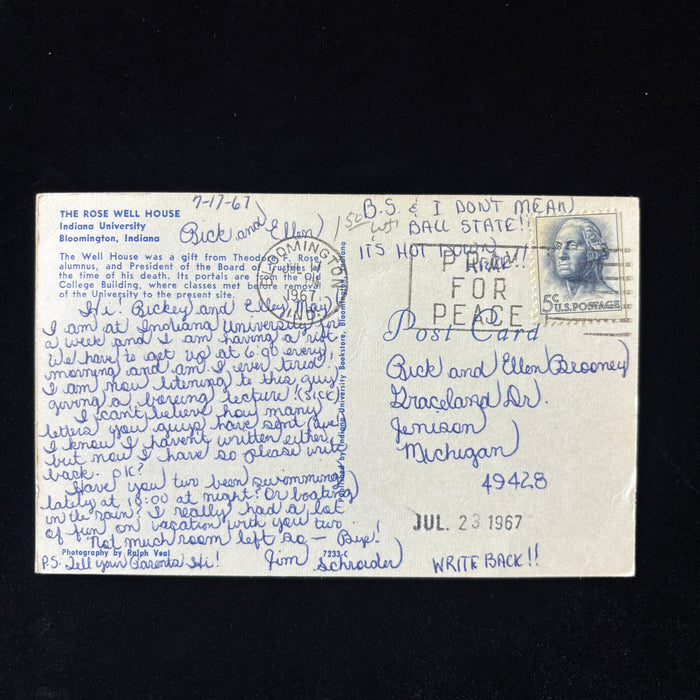 7-17-67
THE ROSE WELL HOUSE
Indiana University
Bloomington, Indiana
Rick and Ellen
The Well House was a gift from Theodore F. Rose,
alumnus, and President of the Board of Trustees at
the time of his death. Its portals are from the Old
College Building, where classes met before removal
of the University to the present site.
Hi! Rickey and Elley May,
I am at Indiana University for
a week and I am having a rift.
We have to get up at 6:00 every
morning and am I ever tired.
I am now litening to this guy
giving a boreing lecture! (SICK)
I can't believe how many
letters you guys have sent
I know I havent written either
but now I have so please write
back. OK?
Have you two been swimming
lately at 10:00 at night? Or boating
in the rain? I really had a lot
of fun on vacation with you two.
Not much room left so — Bye!
Jim Schroider
Photography by Ralph Veal
7233-C
P.S. Tell your Parents Hi!
Published by Indiana University Bookstore, Bloomington, Indiana
B.S. & I DON'T MEAN
BALL STATE!!
IT'S HOT DOWN
HERE!!
150
BLOOMINGTON
JUL 17
1967
IND.
PRAY
FOR
PEACE
5c U.S. POSTAGE
Post Card
Rick and Ellen Brooney
Graceland Dr.
Jenison
Michigan
49428
JUL. 23 1967
WRITE BACK!!